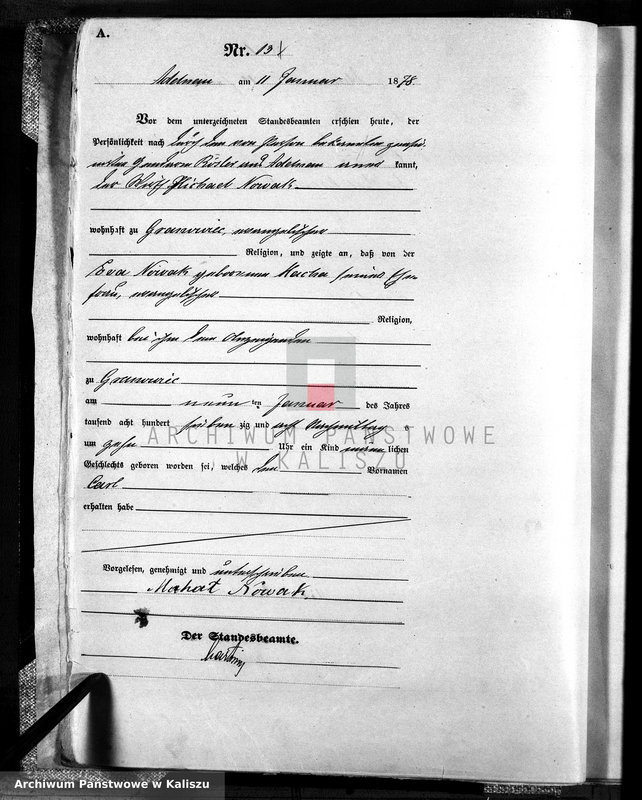 A.
Nr. 13
Adelnau am 11 Januar 1878.
Vor dem unterzeichneten Standesbeamten erschien heute, der
Persönlichkeit nach durch den von Person bekannten
Gendarm aus Adelnau kannt,
der Wirth Michael Nowak
wohnhaft zu Granowiec, evangelischer
Religion, und zeigte an, daß von der
Eva Nowak geborenen Kacha seiner Ehe-
frau, evangelischer
Religion,
wohnhaft bei ihm dem Anzeigenden
zu Granowiec
am neun ten Januar des Jahres
tausend acht hundert sieben zig und acht Nachmittag s
um zehn Uhr ein Kind männlichen
Geschlechts geboren worden sei, welches den Vornamen
Carl
erhalten habe
Vorgelesen, genehmigt und unterschrieben
Mahat Nowak
Der Standesbeamte.
ARCHIWUM PAŃSTWOWE
W KALISZU
Archiwum Państwowe w Kaliszu